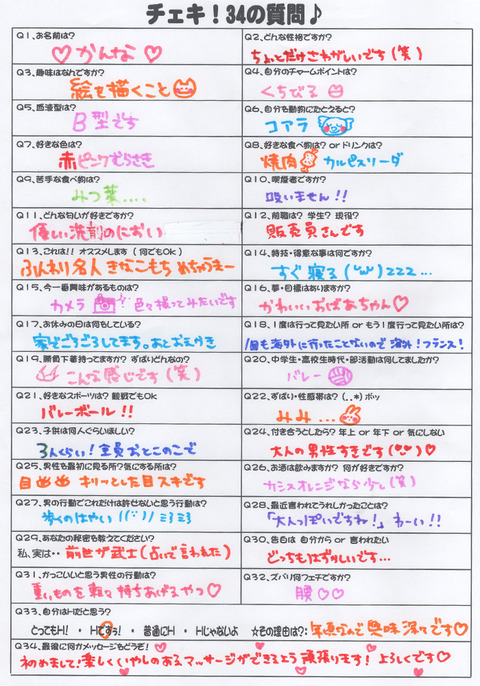 チェキ!34の質問♪
Q1、お名前は?
♡かんな♡
Q2、どんな性格ですか?
ちょっとだけさわがしいです(笑)
Q3、趣味はなんですか?
絵を描くこと
Q4、自分のチャームポイントは?
くちびる
Q5、血液型は?
B型です
Q6、自分を動物にたとえると?
コアラ
Q7、好きな色は?
赤ピンクむらさき
Q8、好きな食べ物は? or ドリンクは?
焼肉 カルピスソーダ
Q9、苦手な食べ物は?
みつ葉....
Q10、喫煙者ですか?
吸いません!!
Q11、どんな匂いが好きですか?
優しい洗剤のにおい
Q12、前職は? 学生? 現役?
販売員さんです
Q13、これは!! オススメします(何でもOk)
ふんわり名人 きなこもち めちゃうまー
Q14、特技・得意な事は何ですか?
すぐ寝る(˘ω˘)zzz...
Q15、今一番興味があるものは?
カメラ 色々撮ってみたいです
Q16、夢・目標はありますか?
かわいいおばあちゃん♡
Q17、お休みの日は何もしている?
家でごろごろしてます。あとおえかき
Q18、1度は行って見たい所 or もう1度行って見たい所は?
1回も海外に行ったことないので 海外!フランス!
Q19、勝負下着持ってますか? ずばりどんなの?
こんな感じです(笑)
Q20、中学生・高校生時代・部活動は何してましたか?
バレー
Q21、好きなスポーツは? 観戦でもOK
バレーボール!!
Q22、ずばり・性感帯は?(..*)ポッ
みみ...
Q23、子供は何人ぐらいほしい?
3人くらい!全員おとこのこで
Q24、付き合うとしたら? 年上 or 年下 or 気にしない
大人の男性すきです ♡
Q25、男性を最初に見る所?気にする所は?
目 キリッとした目スキです
Q26、お酒は飲みますか? 何が好きですか?
カシスオレンジなら少し(笑)
Q27、男の行動でこれだけは許せないと思う行動は?
歩くのはやい
Q28、最近言われてうれしかったことは?
「大人っぽいですね!」わーい!!
Q29、あなたの秘密を教えてください?
私、実は・・前世が武士(占いで言われた)
Q30、告白は 自分から or 言われたい
どっちもはずかしいです…
Q31、かっこいいと思う男性の行動は?
重いものを軽々持ちあげるやつ♡
Q32、ズバリ何フェチですか?
腰♡♡
Q33、自分はHだと思う?
とってもH! ・ Hですっ! ・ 普通にH ・ Hじゃないよ ☆その理由は?: 年頃なんで興味深々です♡
Q34、最後に何かメッセージをどうぞ!
初めまして!楽しくいやしのあるマッサージができるよう頑張ります!よろしくです♡